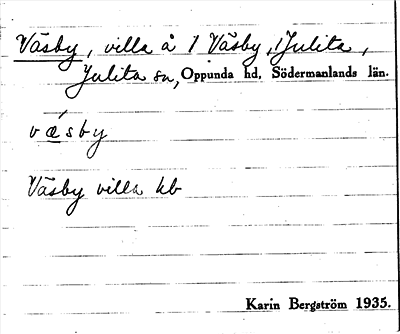 Väsby, villa å 1 Väsby, Julita,
Julita sn, Oppunda hd, Södermanlands län.
vǽsby
Väsby villa kb
Karin Bergström 1935.